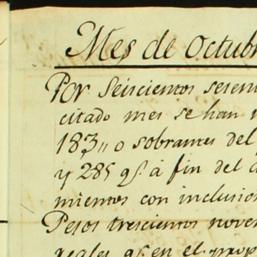 Mes de Octubr
Por Seiscientos sesen
citado mes se han
183,, o sobrantes del
y 285 qs. á fin del
mientos con inclusio
Pesos trescientos nove
reales qs. en el prop